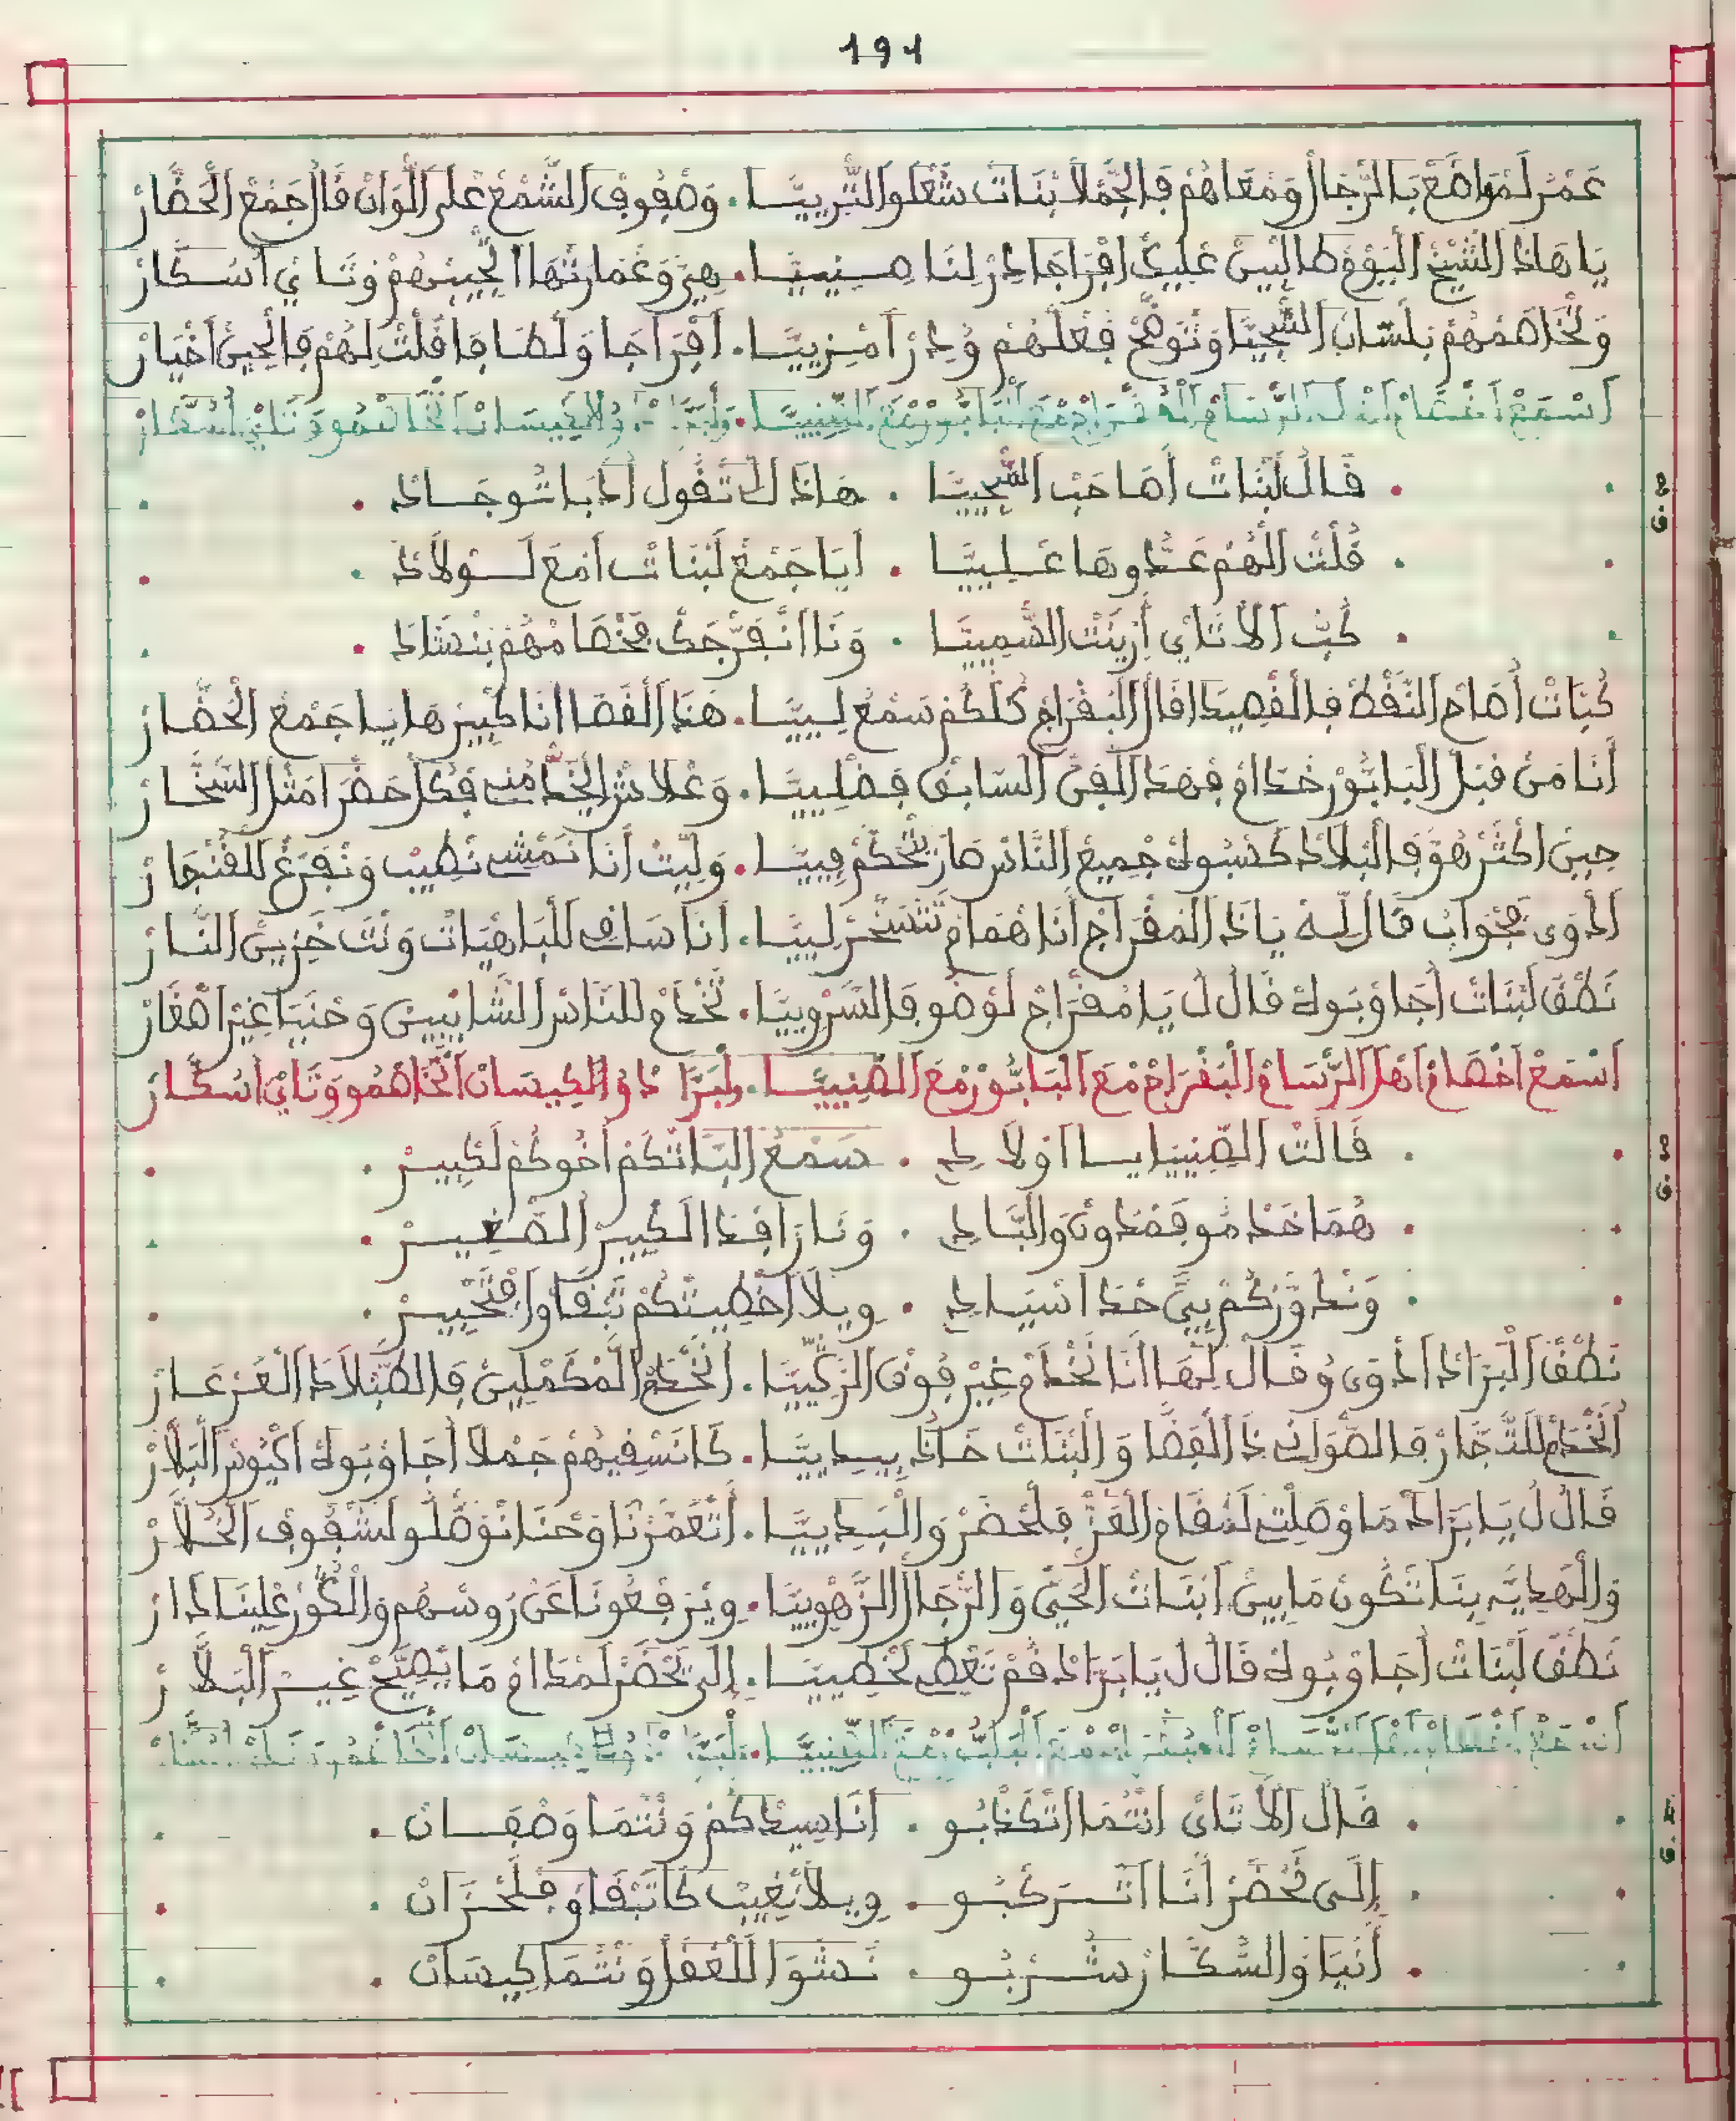 191
عَمْر لَمْوَاضَعْ بَالرّجَالْ وَمْعَاهُمْ فَالجَّمْلَا بْنَاتْ شَعْلُو التّرِييَّا . وَصْفُوفْ الشّمْعْ عْلَى اللّوَانْ قَالْ جَمْعْ الحَضَّارْ
يَا هَاذْ الشّيْخْ اليَوْمْ طَالْبِينْ عْلِيكْ افْرَاجَا دِرْ لِنَا صِينِييَّا . هِيَ وَعْمَارَتْهَا الجِّيبْهُمْ وَتَايْ اسُكَّارْ
وَتْخَاصَمْهُمْ بِلْسَانْ السّجِيَّا وَتْوَضّحْ فِعْلْهُمْ وُدِرْ امْزِييَّا . افْرَاجَا وَلْطَافَا قُلْتْ لِهُمْ فَالحِينْ اخْيَارْ
اسْمَعْ اخْصَامْ اهْلْ الرّسَامْ البُقْرَاجْ مْعَ البَابُّورْ مْعَ الصِّينِييَّا . وَلْبَرَّادْ وُالكِيسَانْ اتْخَاصْمُو وَتَايْ اسُكَّارْ
ق.2
. قَالُ لَبْنَاتْ أَصَاحَبْ السّجِييَّا . هَاذَا لَكْ تْقُولْ أَدْبَاتُو جَادْ .
. قُلْتْ الْهُمْ عَدُّوهَا عْلِييَّا . أَيَا جَمْعْ لَبْنَاتْ امْعَ لَوْلَادْ .
. كُبّْ الَاتَايْ أَزِينْتْ السّمِييَّا . وَنَا انْفَرّْجَكْ فَخْصَامْهُمْ بَنْشَادْ .
كُبَّاتْ أُصَاحْ النّقْطْ فِالقْصِيدَا قَالْ البُقْرَاجْ كُلْكُمْ سَمْعْ لِييَّا . هَذْ القْصَا انَا كْبِيرْهَا يَا جَمْعْ الحُضَّارْ
أَنَا مَنْ قْبَلْ البَابُّورْ خَدَّامْ فِهَذْ الفَنّْ السَّابَقْ فِضْلِييَّا . وَعْلَاشْ الخَدْمَا مْنِي فَكْلْ حَضْرَا مَثْلْ السّخَّارْ
حِينْ اكْثَرْ هُوَ فَالبْلَادْ كَسْبُوهْ جْمِيعْ النَّاسْ صَارْ يَتْحَكّمْ فِييَّا . وَلِّيتْ أَنَا نَمْشِي نْطِيبْ وَنْفَرّغْ لَلْفْنْجَارْ
أَدْوَى بَجْوَابُ قَالْ لُه يَا ذَ المُقْرَاجْ أَنَا هُمَامْ تَتْسَخّرْ لِييَّا . أَنَا سَاقِي لَلْبَاهْيَاتْ وَنْتَ خْزِينْ النَّارْ
نَطْقُ لَبْنَاتْ أَجَاوْبُوهْ قَالُ لُ يَا مُقْرَاجْ لَوْضُو فَالسّرْوِييَّا . تَخْدَمْ لَلنَّاسْ الشَّايْبِينْ وَحْنَيَا غِيرْ اصْغَارْ
اسْمَعْ اخْصَامْ اهْلْ الرّسَامْ البُقْرَاجْ مْعَ البَابُّورْ مْعَ الصِّينِييَّا . وَلْبَرَّادْ وُالكِيسَانْ اتْخَاصْمُو وَتَايْ اسُكَّارْ
ق.3
. قَالَتْ الصِّينِيَا يَا اوْلَادِي . سَمْعُ اليَّا نَتْكُمْ اخُوكُمْ لَكْبِيرْ .
. هُمَا خَدْمُو قَصْدُونْ وَالبَّادِي . وَنَا رَافْدَا الكْبِيرْ الصّغِيرْ .
. وَنْدَوّرْكُمْ بِينْ حَدّْ اسْيَادِي . وِيلَا اخْطِيتْكُمْ تَبْقَاوْا فْتَحْيِيرْ .
نَطْقْ البَرَّادْ أَدْوَى وُقَالْ لِهَا أَنَا نَخْدَمْ غِيرْ فُوقْ الزّكِييَّا . انَخْدَمْ المْكَمْلِينْ فَالطَّبْلَاتْ العَرْعَارْ
انَخْدَمْ لَلتُّجَّارْ فَالصّوَانِي ذَ الفَضَّا وَالبْنَاتْ خَادْ بِيدِييَّا . كَانَسْقِيهُمْ جَمْلَا أَجَاوْبُوهْ اكْيُوسْ البَلَّارْ
قَالُ لُ يَا بَرَّادْ مَا وْصَلْتِي لَمْقَامْ العَزّْ فَلْحَضْرْ وَالبَدِييَّا . اتْعَمّرْنَا وَحْنَا نْوَصْلُو لَشْفُوفْ الخُلَّارْ
وَالهَدِيَّه بِنَا تْكُونْ مَابِينْ ابْنَاتْ الحَيّْ وَالرّجَالْ الزّهْوِييَّا . وِيرَفْعُونَا عَنْ رُوسْهُمْ وَالكُورْ عْلِينَا دَارْ
نَطْقُ لَبْنَاتْ أَجَاوْبُوهْ قَالُ لُ يَا بَرَّادْ قُمْ تَعْطِي لَخْطِييَّا . إِلَى تَحْضَرْ لَمْدَامْ مَا يْصِيحْ غِيرْ البَلَّارْ
اسْمَعْ اخْصَامْ اهْلْ الرّسَامْ البُقْرَاجْ مْعَ البَابُّورْ مْعَ الصِّينِييَّا . وَلْبَرَّادْ وُالكِيسَانْ اتْخَاصْمُو وَتَايْ اسُكَّارْ
ق.4
. قَالْ الَاتَايْ انْتُمَا اتْكَذْبُو . أَنَا سِيدْكُمْ وَنْتُمَا وَصْفَانْ .
. إِلَى نَحْضَرْ أَنَا اتْرَكْبُو . وِيلَا نْغِيبْ كَاتَبْقَاوْ فَلَحْزَانْ .
. أَنَيَا وَالسُّكَّارْ شَرْبُو . نَسْوَا لَلْعْقَلْ وَنْتُمَا كِيسَانْ .